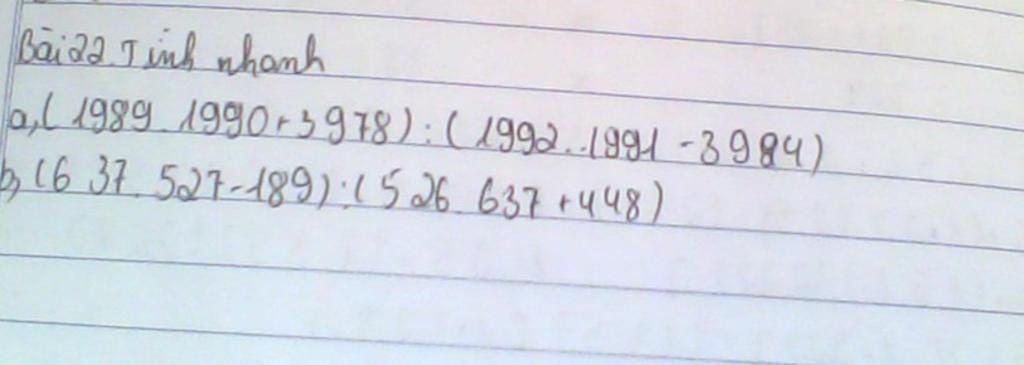 Bài 22 Tính nhanh
a, (1989.1990+3978):(1992.1991-3984)
b, (637.527-189):(526.637+448)